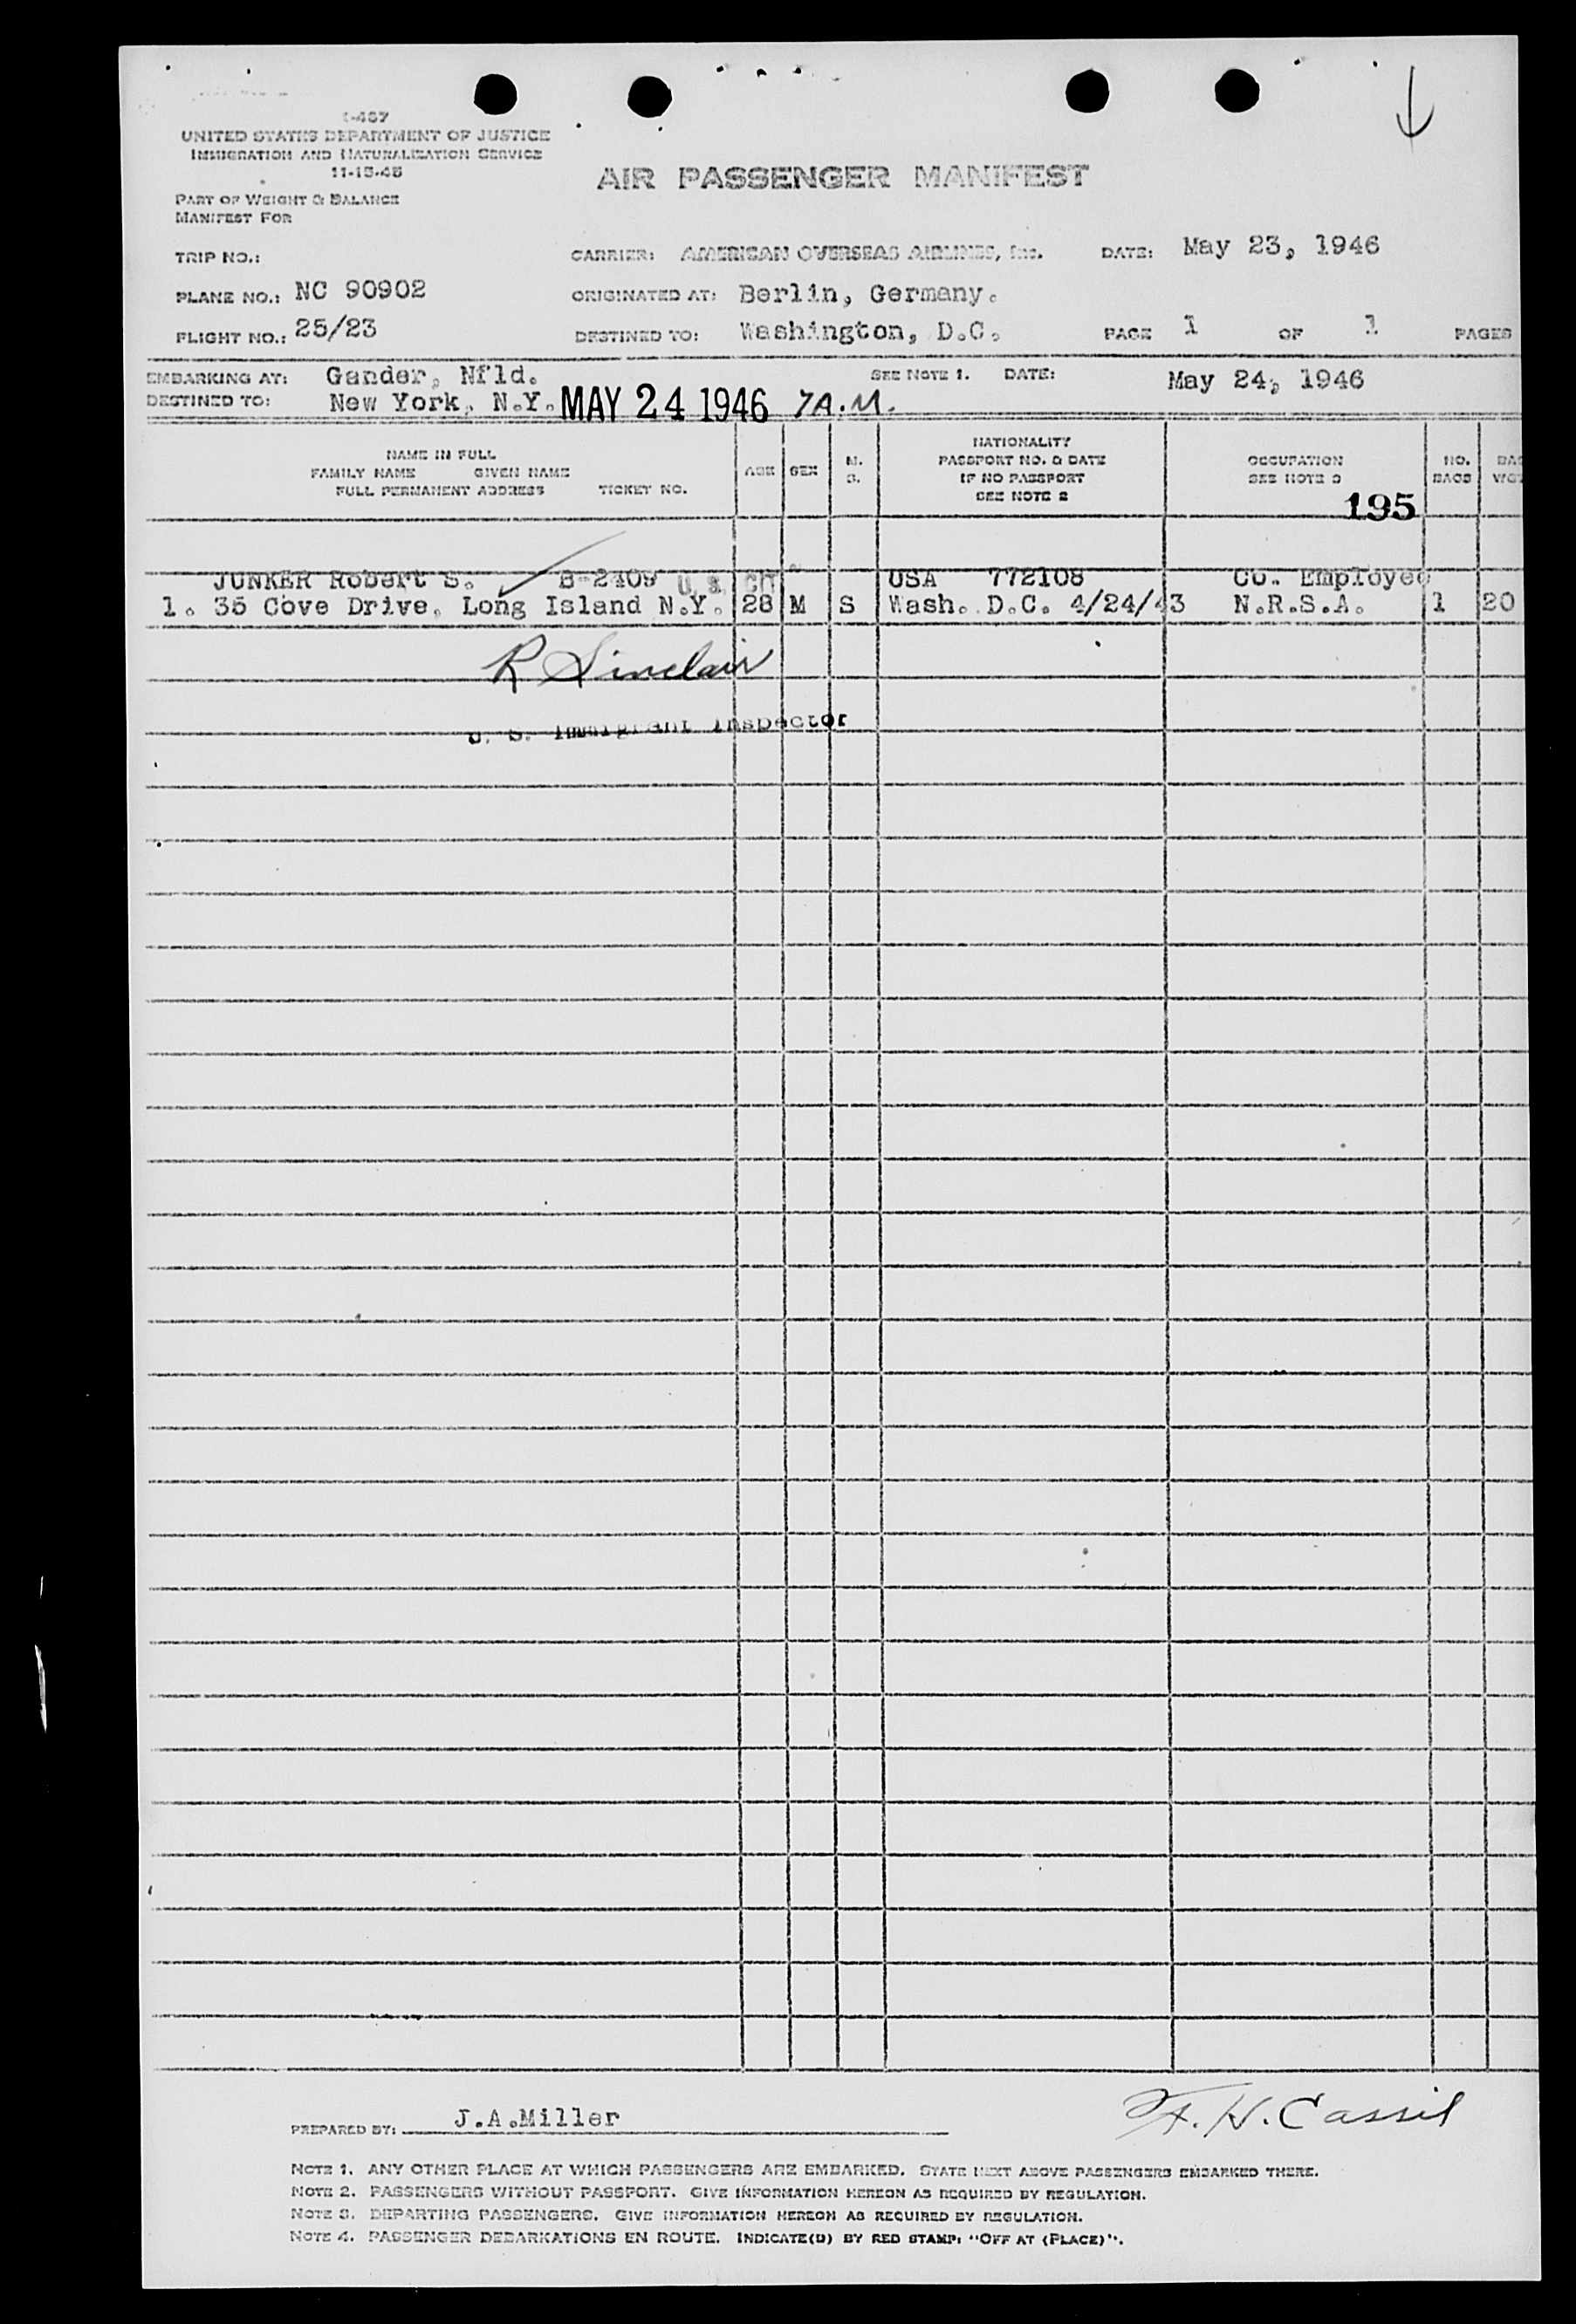 I-467
UNITED STATES DEPARTMENT OF JUSTICE
IMMIGRATION AND NATURALIZATION SERVICE
11-15-45
AIR PASSENGER MANIFEST
PART OF WEIGHT & BALANCE
MANIFEST FOR
TRIP NO.: CARRIER: AMERICAN OVERSEAS AIRLINES, Inc. DATE: May 23, 1946
PLANE NO.: NC 90902 ORIGINATED AT: Berlin, Germany.
FLIGHT NO.: 25/23 DESTINED TO: Washington, D.C. PAGE 1 OF 1 PAGES
EMBARKING AT: Gander, Nfld. SEE NOTE 1. DATE: May 24, 1946
DESTINED TO: New York, N.Y. MAY 24 1946 7A.M.
NAME IN FULL
FAMILY NAME GIVEN NAME
FULL PERMANENT ADDRESS TICKET NO.
AGE SEX M. S.
NATIONALITY
PASSPORT NO. & DATE
IF NO PASSPORT
SEE NOTE 2
OCCUPATION
SEE NOTE 3
NO. BAGS
195
JUNKER Robert S. B-2409 U.S. USA 772108 Co. Employee
1. 35 Cove Drive, Long Island N.Y. 28 M S Wash. D.C. 4/24/43 N.R.S.A. 1 20
R Sinclair
U. S. Immigrant Inspector
F. H. Cassil
PREPARED BY: J.A.Miller
NOTE 1. ANY OTHER PLACE AT WHICH PASSENGERS ARE EMBARKED. STATE NEXT ABOVE PASSENGERS EMBARKED THERE.
NOTE 2. PASSENGERS WITHOUT PASSPORT. GIVE INFORMATION HEREON AS REQUIRED BY REGULATION.
NOTE 3. DEPARTING PASSENGERS. GIVE INFORMATION HEREON AS REQUIRED BY REGULATION.
NOTE 4. PASSENGER DEBARKATIONS EN ROUTE. INDICATE(D) BY RED STAMP: "OFF AT (PLACE)".